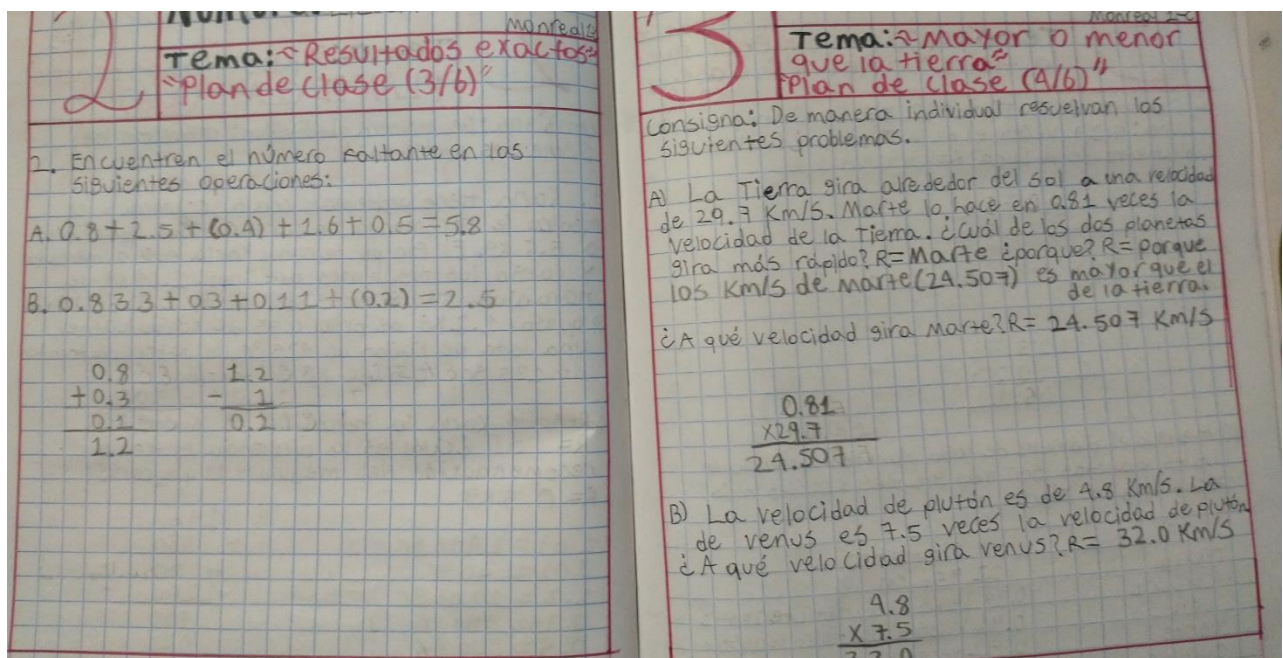 2
Monreal 2
Tema: ~Resultados exactos~
"Plan de clase (3/6)"
2. Encuentren el número faltante en las
siguientes operaciones:
A. 0.8+2.5+(0.4)+1.6+0.5=5.8
B. 0.833+0.3+0.11+(0.2)=2.5
0.8
+0.3
0.1
1.2
1.2
- 1
0.2
3
Monreal 2-C
Tema: ~Mayor o menor
que la tierra~
"Plan de clase (4/6)"
Consigna: De manera individual resuelvan los
siguientes problemas.
A) La Tierra gira alrededor del sol a una velocidad
de 29.7 Km/s. Marte lo hace en 0.81 veces la
velocidad de la Tierra. ¿Cuál de los dos planetas
gira más rápido? R= Marte ¿porque? R= porque
los Km/s de marte (24.507) es mayor que el
de la tierra.
¿A qué velocidad gira Marte? R= 24.507 Km/s
0.81
x29.7
24.507
B) La velocidad de plutón es de 4.8 Km/s. La
de venus es 7.5 veces la velocidad de plutón
¿A qué velocidad gira venus? R= 32.0 Km/s
4.8
x 7.5